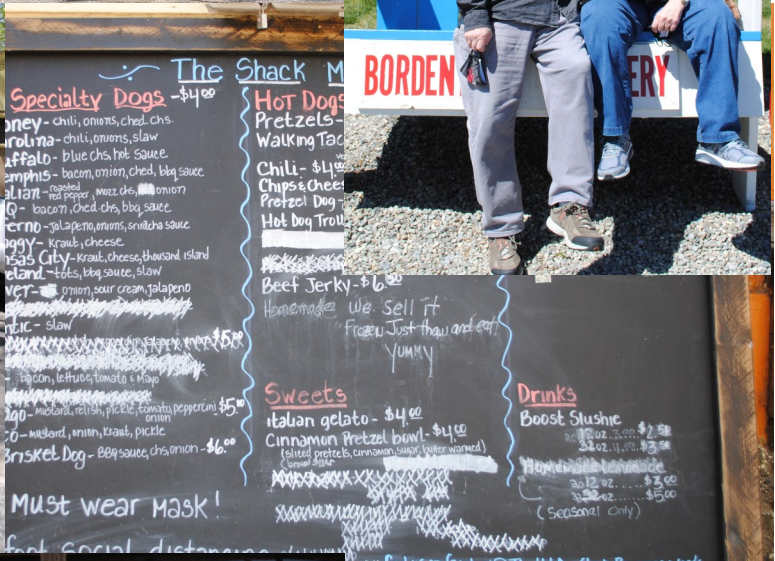 The Shack M
Specialty Dogs - $4.00
oney - chili, onions, ched. chs.
rolina - chili, onions, slaw
uffalo - blue chs, hot sauce
emphis - bacon, onion, ched, bbq sauce
alian - roasted red pepper, mozz chs, onion
Q - bacon, ched. chs, bbq sauce
erno - jalapeno, onions, sriracha sauce
aggy - kraut, cheese
nsas City - kraut, cheese, thousand island
eland - tots, bbq sauce, slaw
ver - onion, sour cream, jalapeno
ntic - slaw
$5.00
- bacon, lettuce, tomato & mayo
ago - mustard, relish, pickle, tomato, peppercini $5.00
onion
o - mustard, onion, kraut, pickle
Brisket Dog - BBQ sauce, chs, onion - $6.00
Must wear mask!
foot social distancing
Hot Dogs
Pretzels -
Walking Tac
Chili - $4.00
Chips & Chees
Pretzel Dog -
Hot Dog Troll
Beef Jerky - $6.
Homemade We sell it
Frozen Just thaw and eat
YUMMY
Sweets
italian gelato - $4.00
Cinnamon Pretzel bowl - $4.00
(sliced pretzels, cinnamon, sugar, butter warmed)
Drinks
Boost Slushie
12 oz. $2.50
32 oz. $3.50
Homemade Lemonade
12 oz. $3.00
32 oz. $5.00
(Seasonal Only)
BORDEN ERY